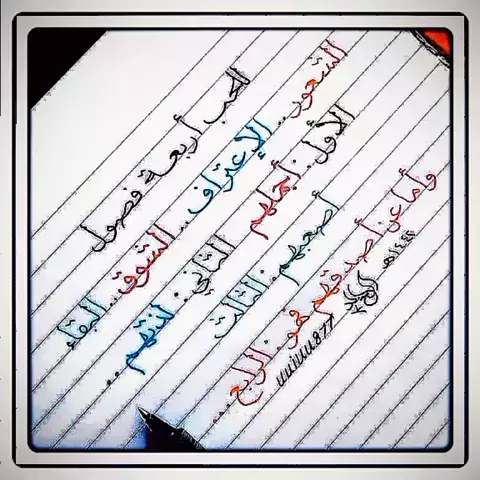 الحب أربعة فصول
الشعور.. الإعتراف.. الشوق.. البقاء
الأول.. أجملهم الثاني.. لذتهم..
أصعبهم.. الثالث
وأما عن أصدقهم هو.. الرابع...
uuiuuu877